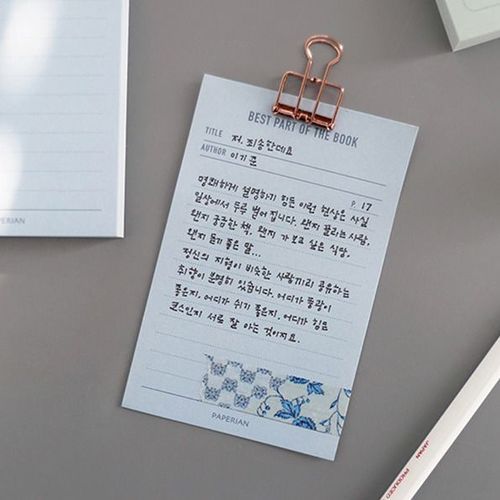 BEST PART OF THE BOOK
TITLE 저, 죄송한데요
AUTHOR 이기준
P. 17
명쾌하게 설명하기 힘든 이런 현상은 사실
일상에서 두루 벌어집니다. 왠지 끌리는 사람,
왠지 궁금한 책, 왠지 가보고 싶은 식당,
왠지 듣기 좋은 말...
정신의 지형이 비슷한 사람끼리 공유하는
취향이 분명히 있습니다. 어디가 풍광이
좋은지, 어디가 쉬기 좋은지, 어디가 힘든
코스인지 서로 잘 아는 것이지요.
PAPERIAN
PERIAN
JAPAN
PRODUCED